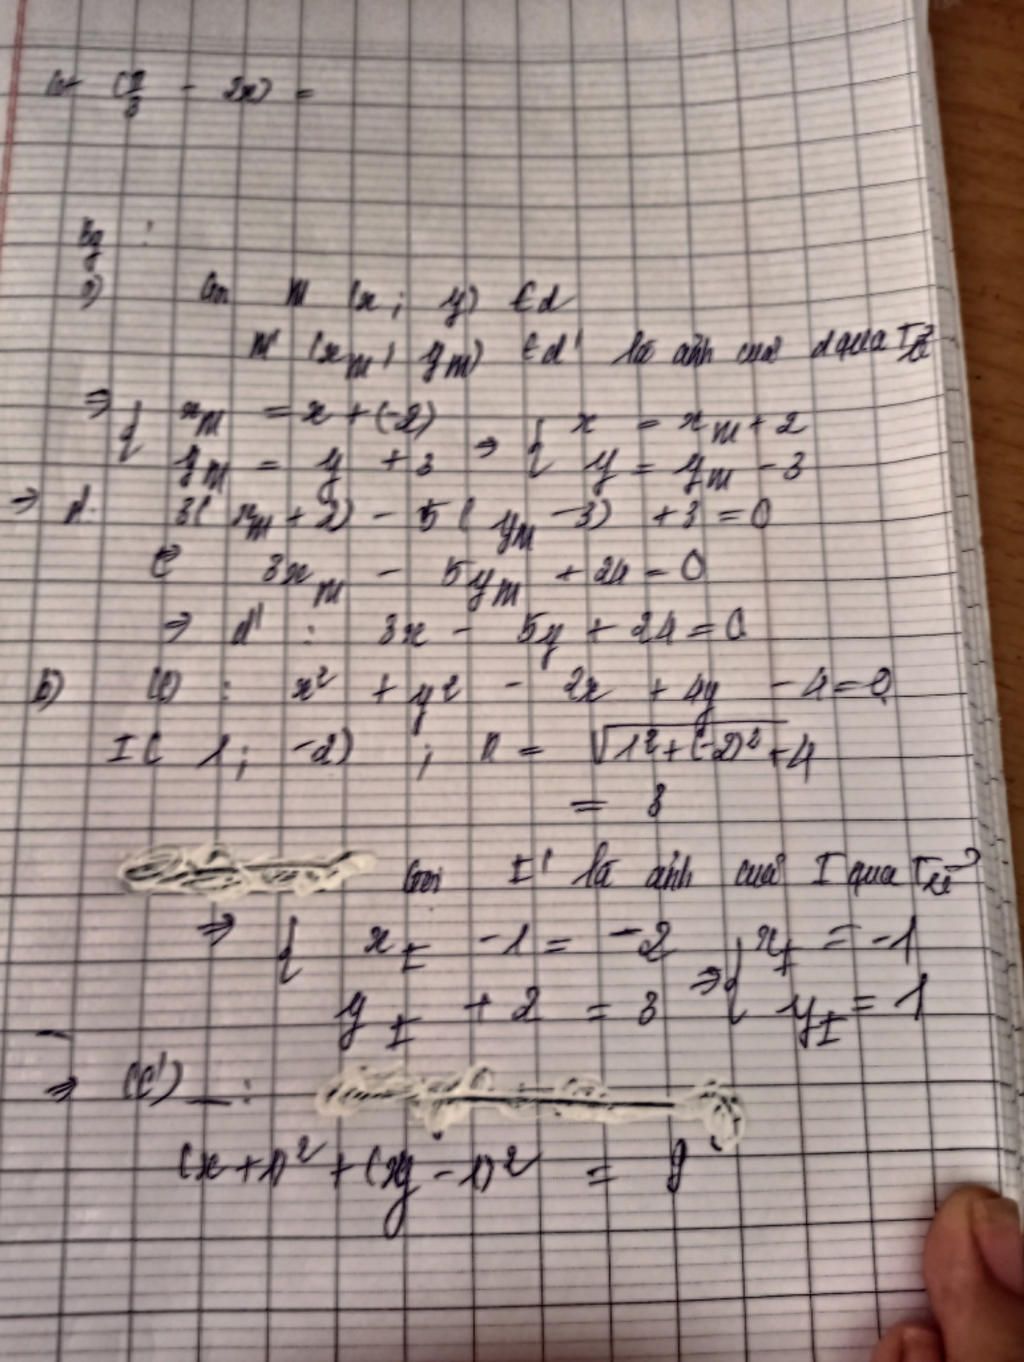 cot (π/3 - 2x) =
Bg :
a) Gọi M (x; y) ∈ d
M' (x_M' y_M) ∈ d' là ảnh của d qua T_u⃗
⇒ { x_M = x + (-2) ⇒ { x = x_M + 2
y_M = y + 3 y = y_M - 3
⇒ d: 3( x_M + 2) - 5( y_M - 3) + 3 = 0
⇔ 3x_M - 5y_M + 24 = 0
⇒ d' : 3x - 5y + 24 = 0
b) (C) : x² + y² - 2x + 4y - 4 = 0
I( 1; -2) ; R = √1² + (-2)² + 4
= 3
Gọi I' là ảnh của I qua T_u⃗
⇒ { x_I - 1 = -2 ⇒ { x_I = -1
y_I + 2 = 3 y_I = 1
⇒ (C') :
(x + 1)² + (y - 1)² = 9